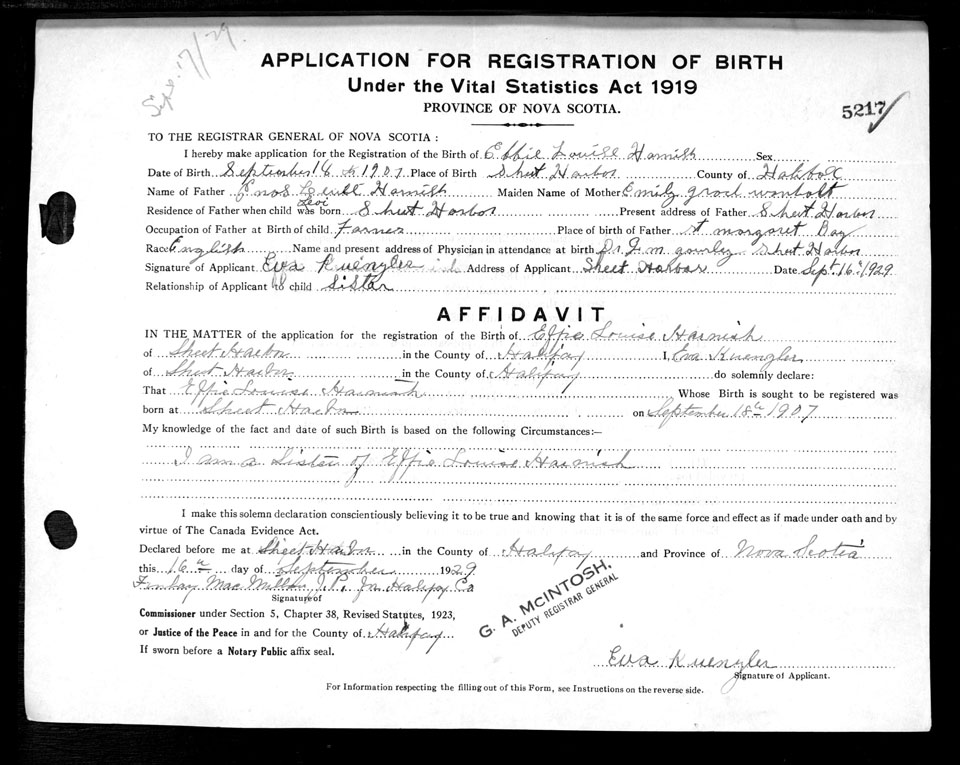 Sept. 17/29.
APPLICATION FOR REGISTRATION OF BIRTH
Under the Vital Statistics Act 1919
PROVINCE OF NOVA SCOTIA.
5217
TO THE REGISTRAR GENERAL OF NOVA SCOTIA :
I hereby make application for the Registration of the Birth of Effie Louise Harnish Sex
Date of Birth September 18 1907 Place of Birth Sheet Harbor County of
Name of Father Enos Harnish Maiden Name of Mother Emily
Levi
Residence of Father when child was born Sheet Harbor Present address of Father Sheet Harbor
Occupation of Father at Birth of child Farmer Place of birth of Father st margaret Bay
Race English Name and present address of Physician in attendance at birth Dr. Sheet Harbor
Signature of Applicant Eva Kuengler Address of Applicant Sheet Harbor Date Sept. 16th 1929
Relationship of Applicant to child Sister
AFFIDAVIT
IN THE MATTER of the application for the registration of the Birth of Effie Louise Harnish
of Sheet Harbor in the County of Halifax I, Eva Kuengler
of Sheet Harbor in the County of Halifax do solemnly declare:
That Effie Louise Harnish Whose Birth is sought to be registered was
born at Sheet Harbor on September 18th 1907
My knowledge of the fact and date of such Birth is based on the following Circumstances:—
I am a Sister of Effie Louise Harnish
I make this solemn declaration conscientiously believing it to be true and knowing that it is of the same force and effect as if made under oath and by
virtue of The Canada Evidence Act.
Declared before me at Sheet Harbor in the County of Halifax and Province of Nova Scotia
this 16th day of September 1929
Finlay MacMillan J.P. for Halifax Co
Signature of
G. A. McINTOSH,
DEPUTY REGISTRAR GENERAL
Commissioner under Section 5, Chapter 38, Revised Statutes, 1923,
or Justice of the Peace in and for the County of Halifax
If sworn before a Notary Public affix seal.
Eva Kuengler
Signature of Applicant.
For Information respecting the filling out of this Form, see Instructions on the reverse side.